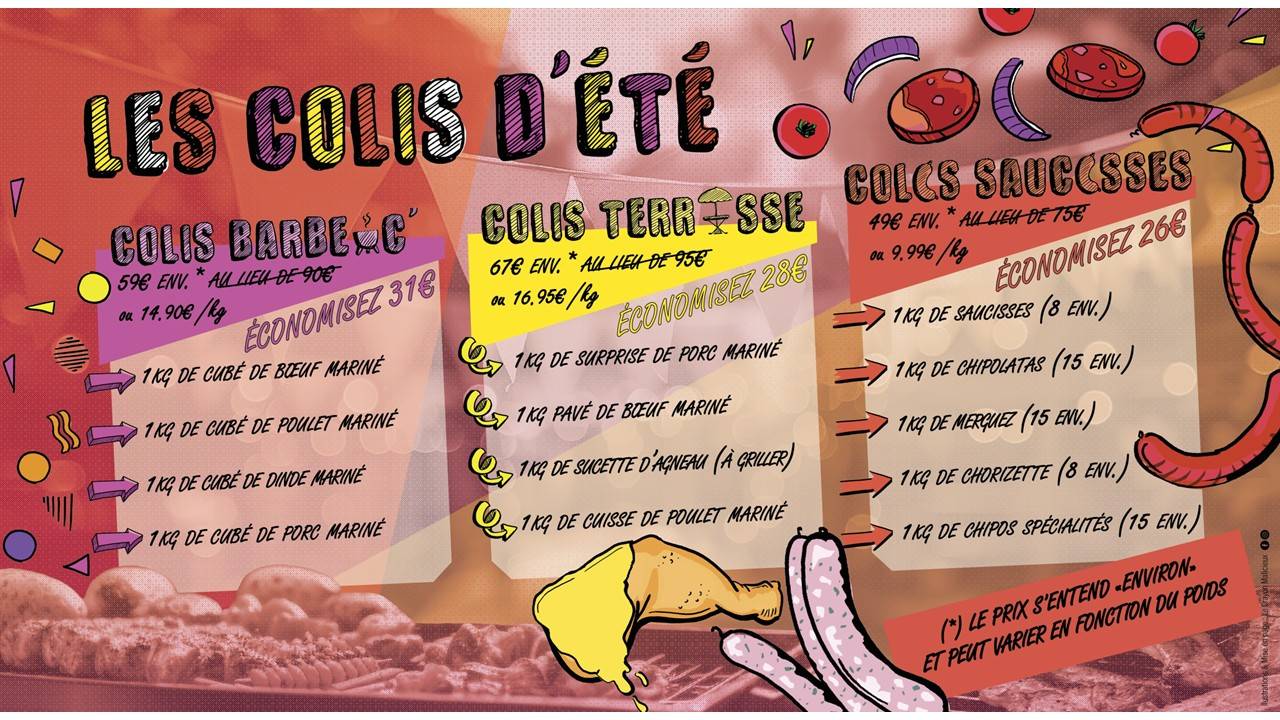 LES COLIS D'ÉTÉ
COLIS BARBEAC'
59€ ENV. * AU LIEU DE 90€
ou 14.90€ /kg
ÉCONOMISEZ 31€
1 KG DE CUBÉ DE BŒUF MARINÉ
1 KG DE CUBÉ DE POULET MARINÉ
1 KG DE CUBÉ DE DINDE MARINÉ
1 KG DE CUBÉ DE PORC MARINÉ
COLIS TERRASSE
67€ ENV. * AU LIEU DE 95€
ou 16.95€ /kg
ÉCONOMISEZ 28€
1 KG DE SURPRISE DE PORC MARINÉ
1 KG PAVÉ DE BŒUF MARINÉ
1 KG DE SUCETTE D'AGNEAU (À GRILLER)
1 KG DE CUISSE DE POULET MARINÉ
COLIS SAUCISSES
49€ ENV. * AU LIEU DE 75€
ou 9.99€ /kg
ÉCONOMISEZ 26€
1 KG DE SAUCISSES (8 ENV.)
1 KG DE CHIPOLATAS (15 ENV.)
1 KG DE MERGUEZ (15 ENV.)
1 KG DE CHORIZETTE (8 ENV.)
1 KG DE CHIPOS SPÉCIALITÉS (15 ENV.)
(*) LE PRIX S'ENTEND «ENVIRON»
ET PEUT VARIER EN FONCTION DU POIDS
Illustrations & Mise en page : Le Crayon Malicieux